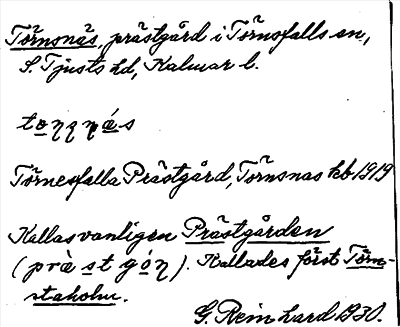 Törnsnäs, prästgård i Törnsfalls sn,
S. Tjusts hd, Kalmar l.
Törnesfalla Prästgård, Törnsnas kb 1919
Kallas vanligen Prästgården
Kallades först Törn-
staholm.
G. Reinhard 1930.